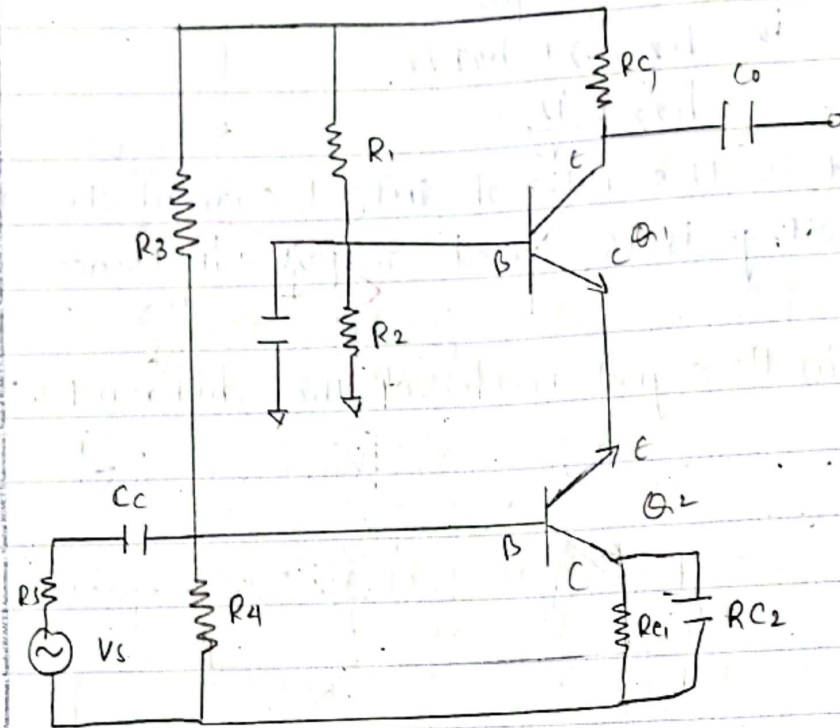 RC1
Co
R1
E
R3
B
C
Q1
R2
E
Cc
Q2
B
C
Rs
R4
Re1
RC2
Vs